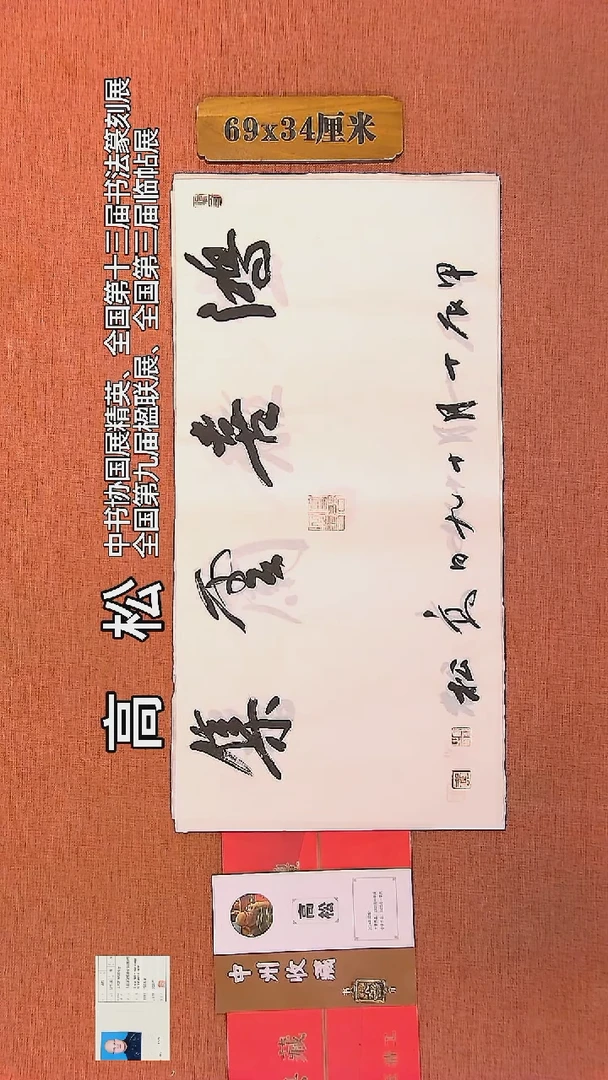 高 松
中书协国展精英、全国第十三届书法篆刻展
全国第九届楹联展、全国第三届临帖展
69x34厘米
鴻喜雲集
甲辰十月十九日高松
高松
中州收藏
藏